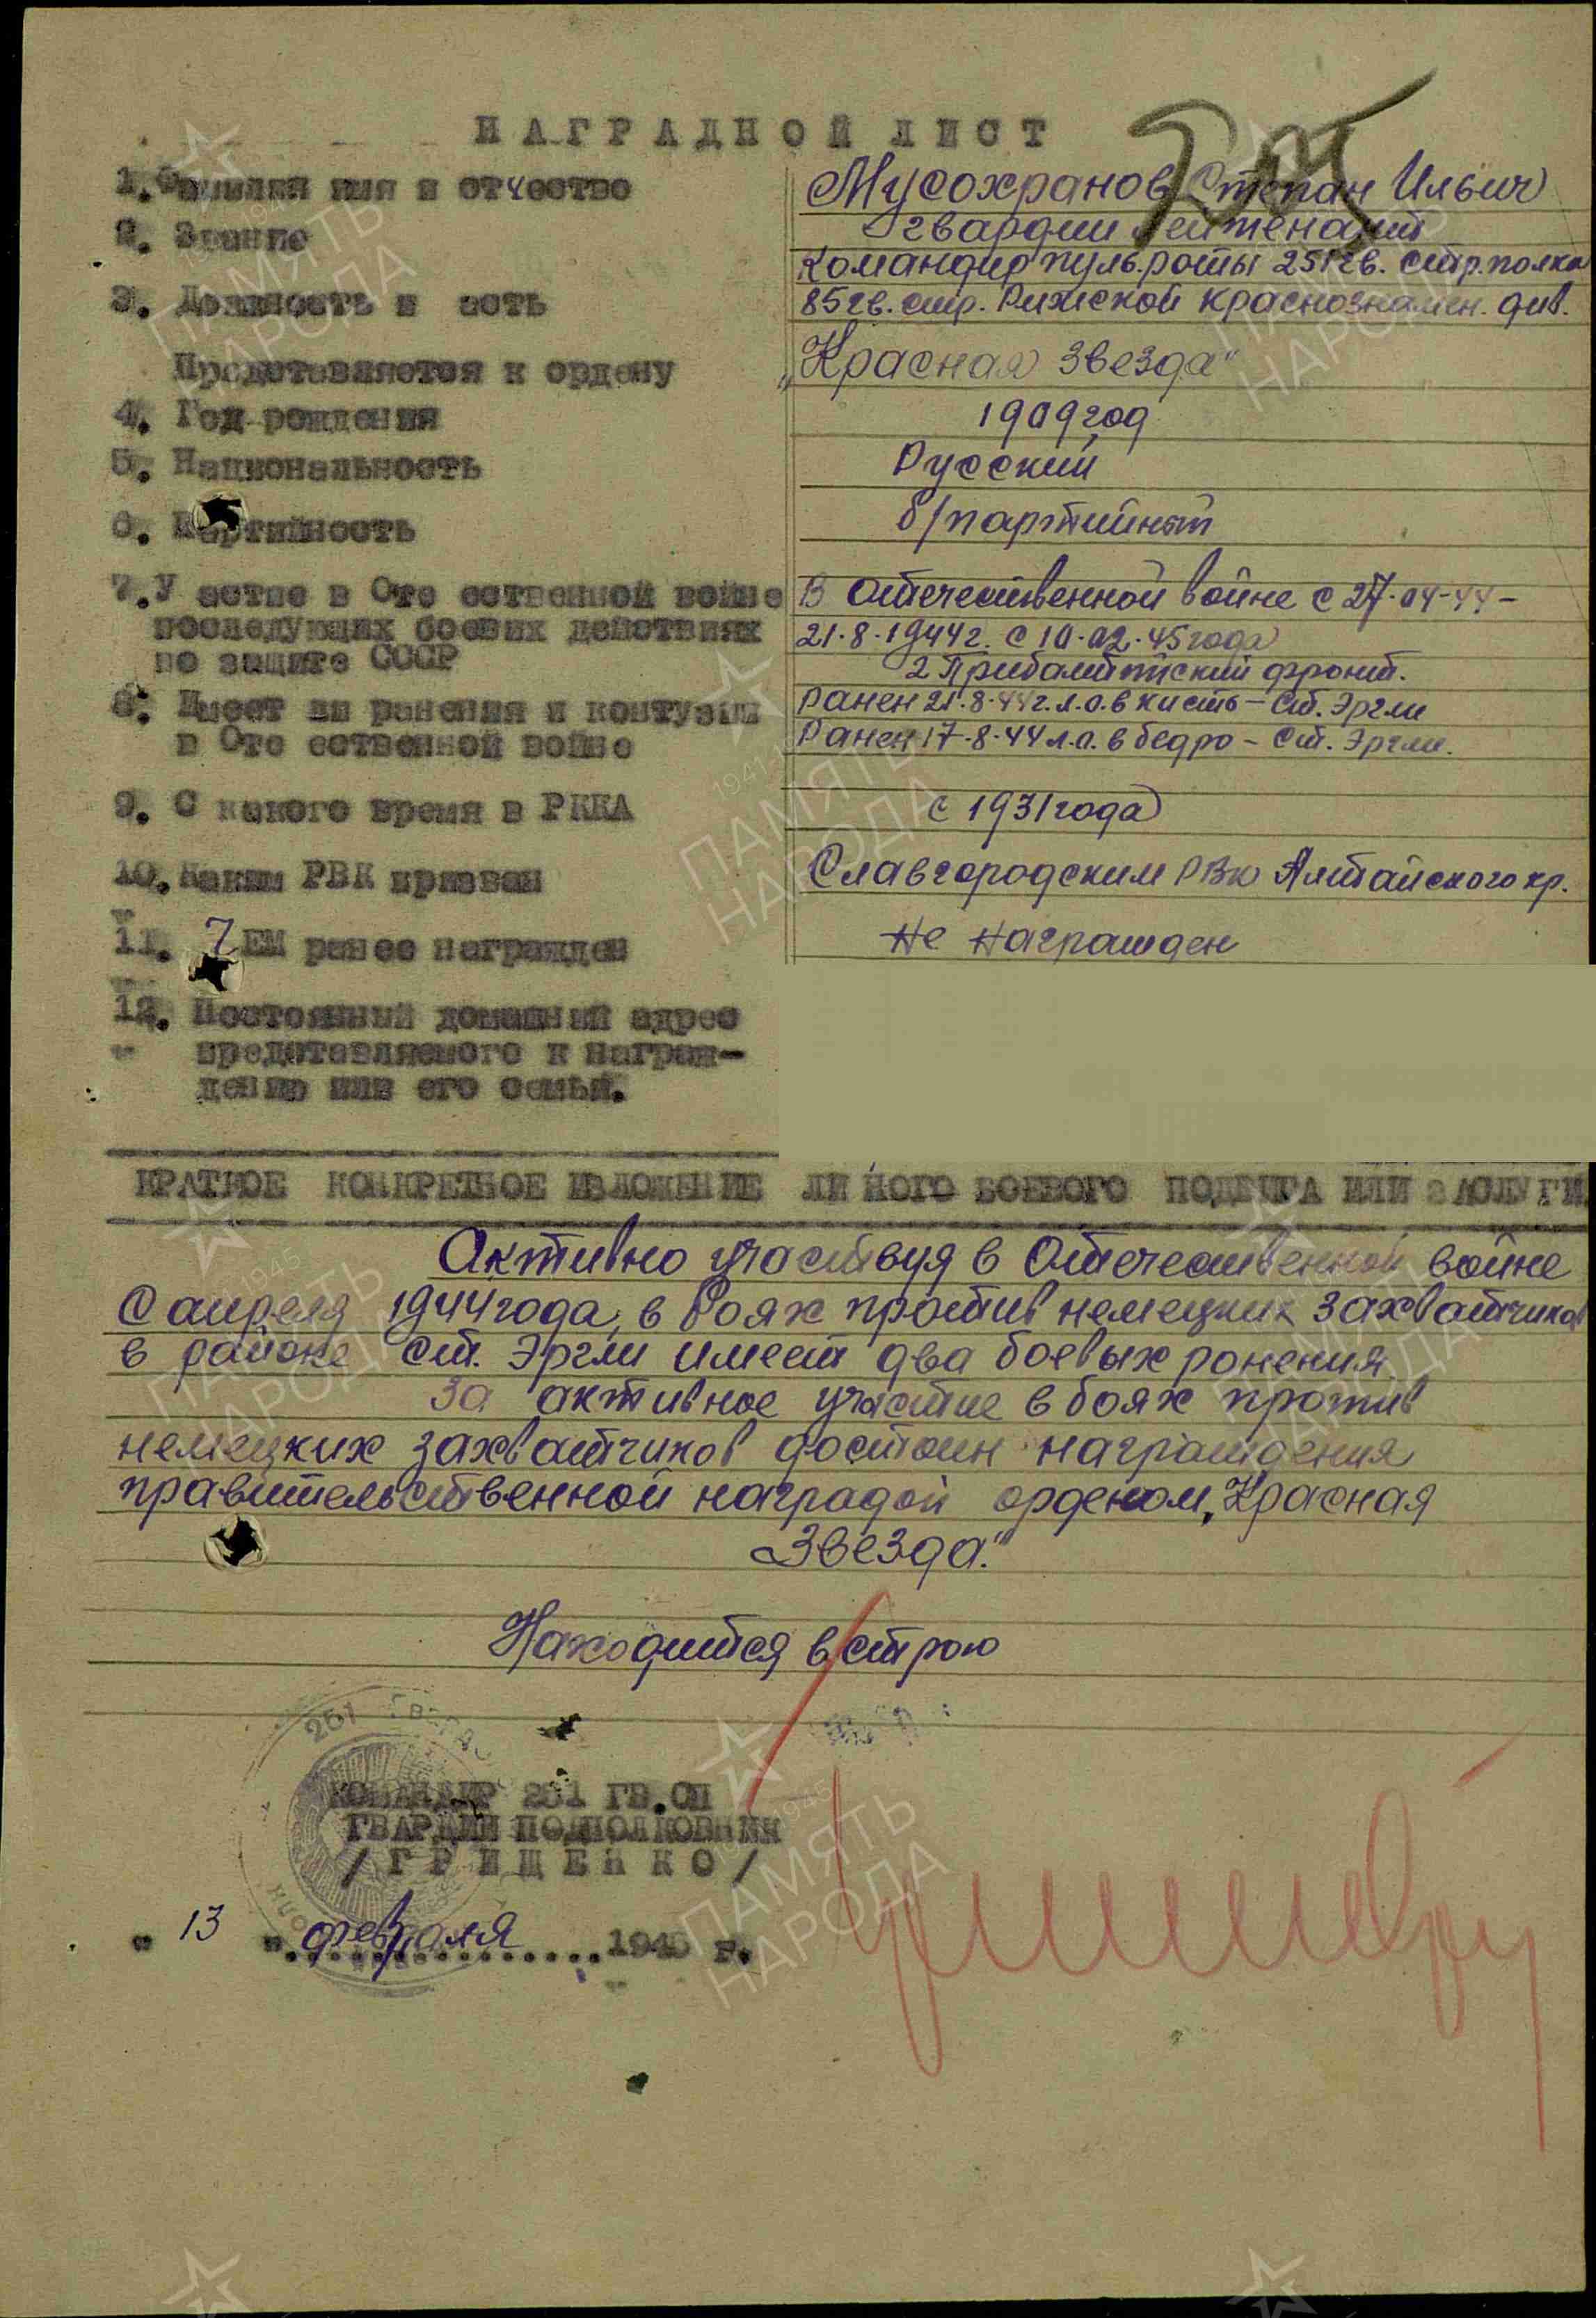 НАГРАДНОЙ ЛИСТ
1. Фамилия имя и отчество
Мусохранов Степан Ильич
2. Звание
гвардии лейтенант
3. Должность и асть
Командир пульроты 251 гв. стр. полка
85 гв. стр. Рижской краснознамен. див.
Представляется к ордену
„Красная Звезда"
4. Год рождения
1909 год
5. Национальность
Русский
6. Партийность
б/партийный
7. У астие в Оте ественной войне
последующих боевых действиях
по защите СССР
В отечественной войне с 27-04-44-
21.8.1944г. с 10.02.45 года
2 Прибалтийский фронт.
8. Имеет ли ранения и контузии
в Оте ественной войне
Ранен 21.8.44г. л.о. в кисть - Ст. Эргли
Ранен 17-8-44 л.о. в бедро - Ст. Эргли.
9. С какого время в РККА
с 1931 года
10. Каким РВК призван
Славгородским РВК Алтайского кр.
11. ЧЕМ ранее награжден
Не награжден
12. Постоянный домашний адрес
представляемого к награж-
дению или его семьи.
КРАТКОЕ КОНКРЕТНОЕ ИЗЛОЖЕНИЕ ЛИ НОГО БОЕВОГО ПОДВИГА ИЛИ ЗАСЛУГИ
Активно участвуя в Отечественной войне
с апреля 1944 года, в боях против немецких захватчиков
в районе ст. Эргли имеет два боевых ронения
За активное участие в боях против
немецких захватчиков достоин награждения
правительственной наградой орденом „Красная
Звезда."
Находится в строю
251 ГВАРД
КОМАНДИР 251 ГВ.СП
ГВАРДИИ ПОДПОЛКОВНИК
/ГРИЩЕНКО/
" 13 " февраля 1945 г.
1941-1945
ПАМЯТЬ
НАРОДА